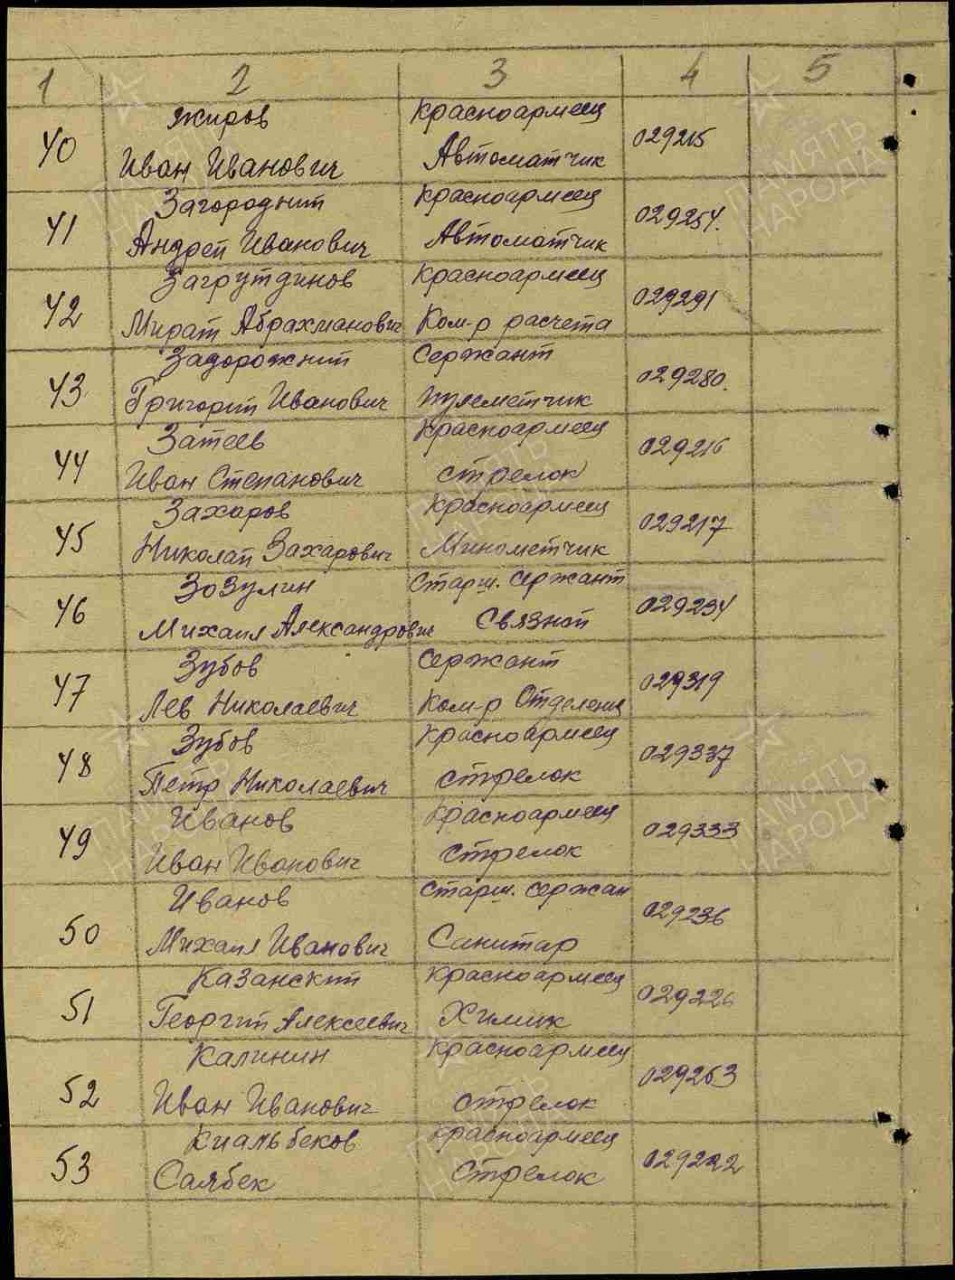 1 2 3 4 5
40 Жиров Красноармеец 029215
Иван Иванович Автоматчик
41 Загороднит Красноармеец 029254.
Андреп Иванович Автоматчик
42 Загрутдинов Красноармеец 029291
Мират Абрахманович Ком-р расчета
43 Задорожнит Сержант 029280.
Григорит Иванович пулеметчик
44 Затеев Красноармеец 029216
Иван Степанович стрелок
45 Захаров Красноармеец 029217
Николап Захарович Минометчик
46 Зозулин Старш. сержант 029234
Михаил Александрович Связнот
47 Зубов Сержант 029319
Лев Николаевич Ком-р Отделениц
48 Зубов Красноармеец 029337
Петр Николаевич стрелок
49 Иванов Красноармеец 029333
Иван Иванович стрелок
50 Иванов Старш. сержан 029236
Михаил Иванович Санитар
51 Казанскит Красноармеец 029226
Георгит Алексеевич Химик
52 Калинин Красноармеец 029263
Иван Иванович стрелок
53 Киальбеков Красноармеец 029222
Саябек Стрелок
ПАМЯТЬ
НАРОДА